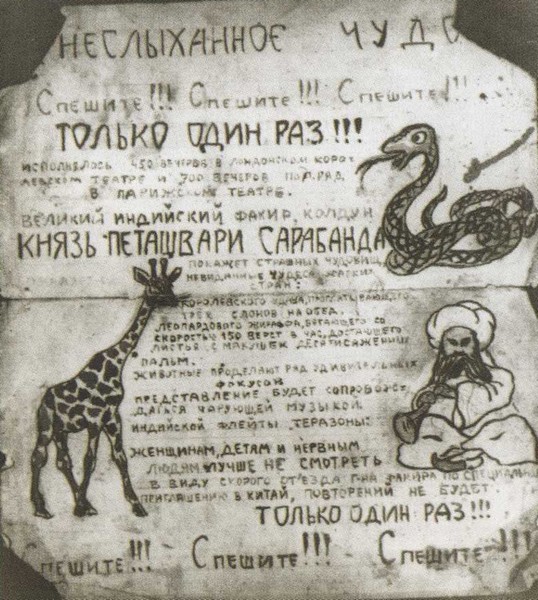 НЕСЛЫХАННОЕ ЧУДО
Спешите!!! Спешите!!! Спешите!!!
ТОЛЬКО ОДИН РАЗ!!!
ИСПОЛНЯЛОСЬ 450 ВЕЧЕРОВ В ЛОНДОНСКОМ КОРО-
ЛЕВСКОМ ТЕАТРЕ И 700 ВЕЧЕРОВ ПОДРЯД
В ПАРИЖСКОМ ТЕАТРЕ.
ВЕЛИКИЙ ИНДИЙСКИЙ ФАКИР, КОЛДУН
КНЯЗЬ ПЕТАШВАРИ САРАБАНДА
ПОКАЖЕТ СТРАШНЫХ ЧУДОВИЩ,
НЕВИДАННЫЕ ЧУДЕСА ЖАРКИХ
СТРАН:
КОРОЛЕВСКОГО УДАВА, ПРОГЛАТЫВАЮЩЕГО
ТРЕХ СЛОНОВ НА ОБЕД.
ЛЕОПАРДОВОГО ЖИРАФА, БЕГАЮЩЕГО СО
СКОРОСТЬЮ 150 ВЕРСТ В ЧАС, ДОСТАЮЩЕГО
ЛИСТЬЯ С МАКУШЕК ДЕСЯТИСАЖЕННЫХ
ПАЛЬМ.
ЖИВОТНЫЕ ПРОДЕЛАЮТ РЯД УДИВИТЕЛЬНЫХ
ФОКУСОВ
ПРЕДСТАВЛЕНИЕ БУДЕТ СОПРОВОЖ-
ДАТЬСЯ ЧАРУЮЩЕЙ МУЗЫКОЙ
ИНДИЙСКОЙ ФЛЕЙТЫ ТЕРАЗОНЫ:
ЖЕНЩИНАМ, ДЕТЯМ И НЕРВНЫМ
ЛЮДЯМ ЛУЧШЕ НЕ СМОТРЕТЬ
В ВИДУ СКОРОГО ОТ'ЕЗДА Г-НА ФАКИРА ПО СПЕЦИАЛЬН
ПРИГЛАШЕНИЮ В КИТАЙ, ПОВТОРЕНИЙ НЕ БУДЕТ.
ТОЛЬКО ОДИН РАЗ!!!
Спешите!!! Спешите!!! Спешите!!!